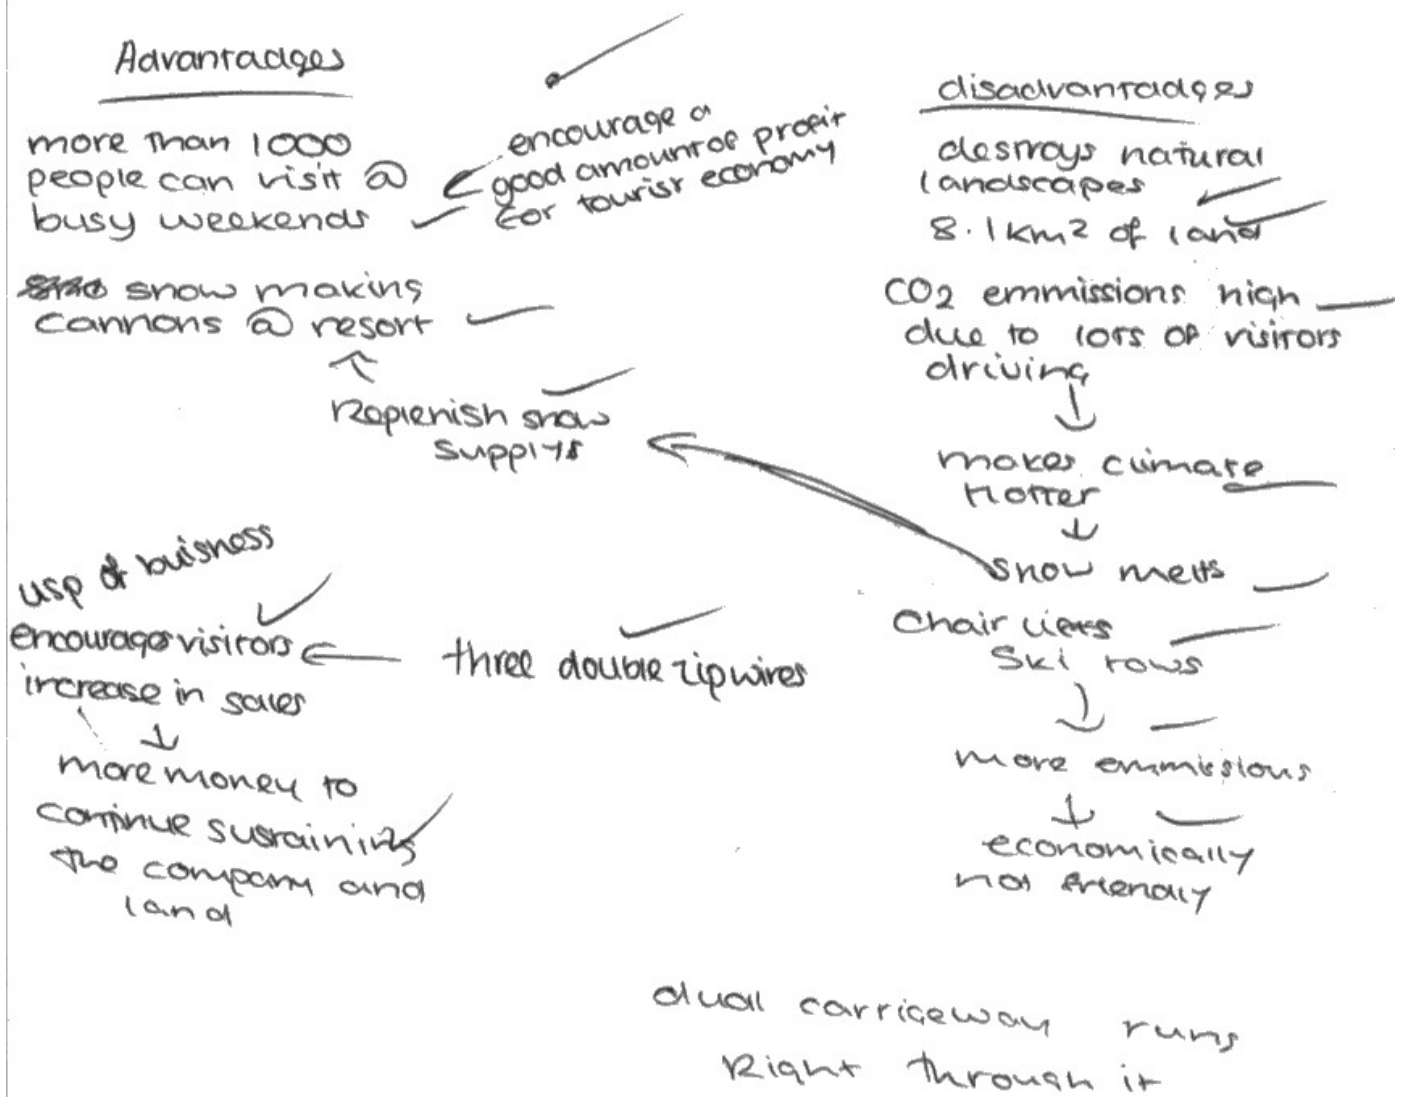 Advantadges
more than 1000
people can visit @
busy weekends
encourage a
good amount of profit
for tourist economy
snow making
cannons @ resort
Replenish snow
supplys
usp of buisness
encourages visitors
increase in sales
more money to
continue sustaining
the company and
land
three double zipwires
disadvantadges
destroys natural
landscapes
8.1km2 of land
CO2 emmissions high
due to lots of visitors
driving
makes climate
Hotter
snow melts
Chair lifts
Ski tows
more emmissions
economically
not friendly
dual carrigeway runs
Right through it